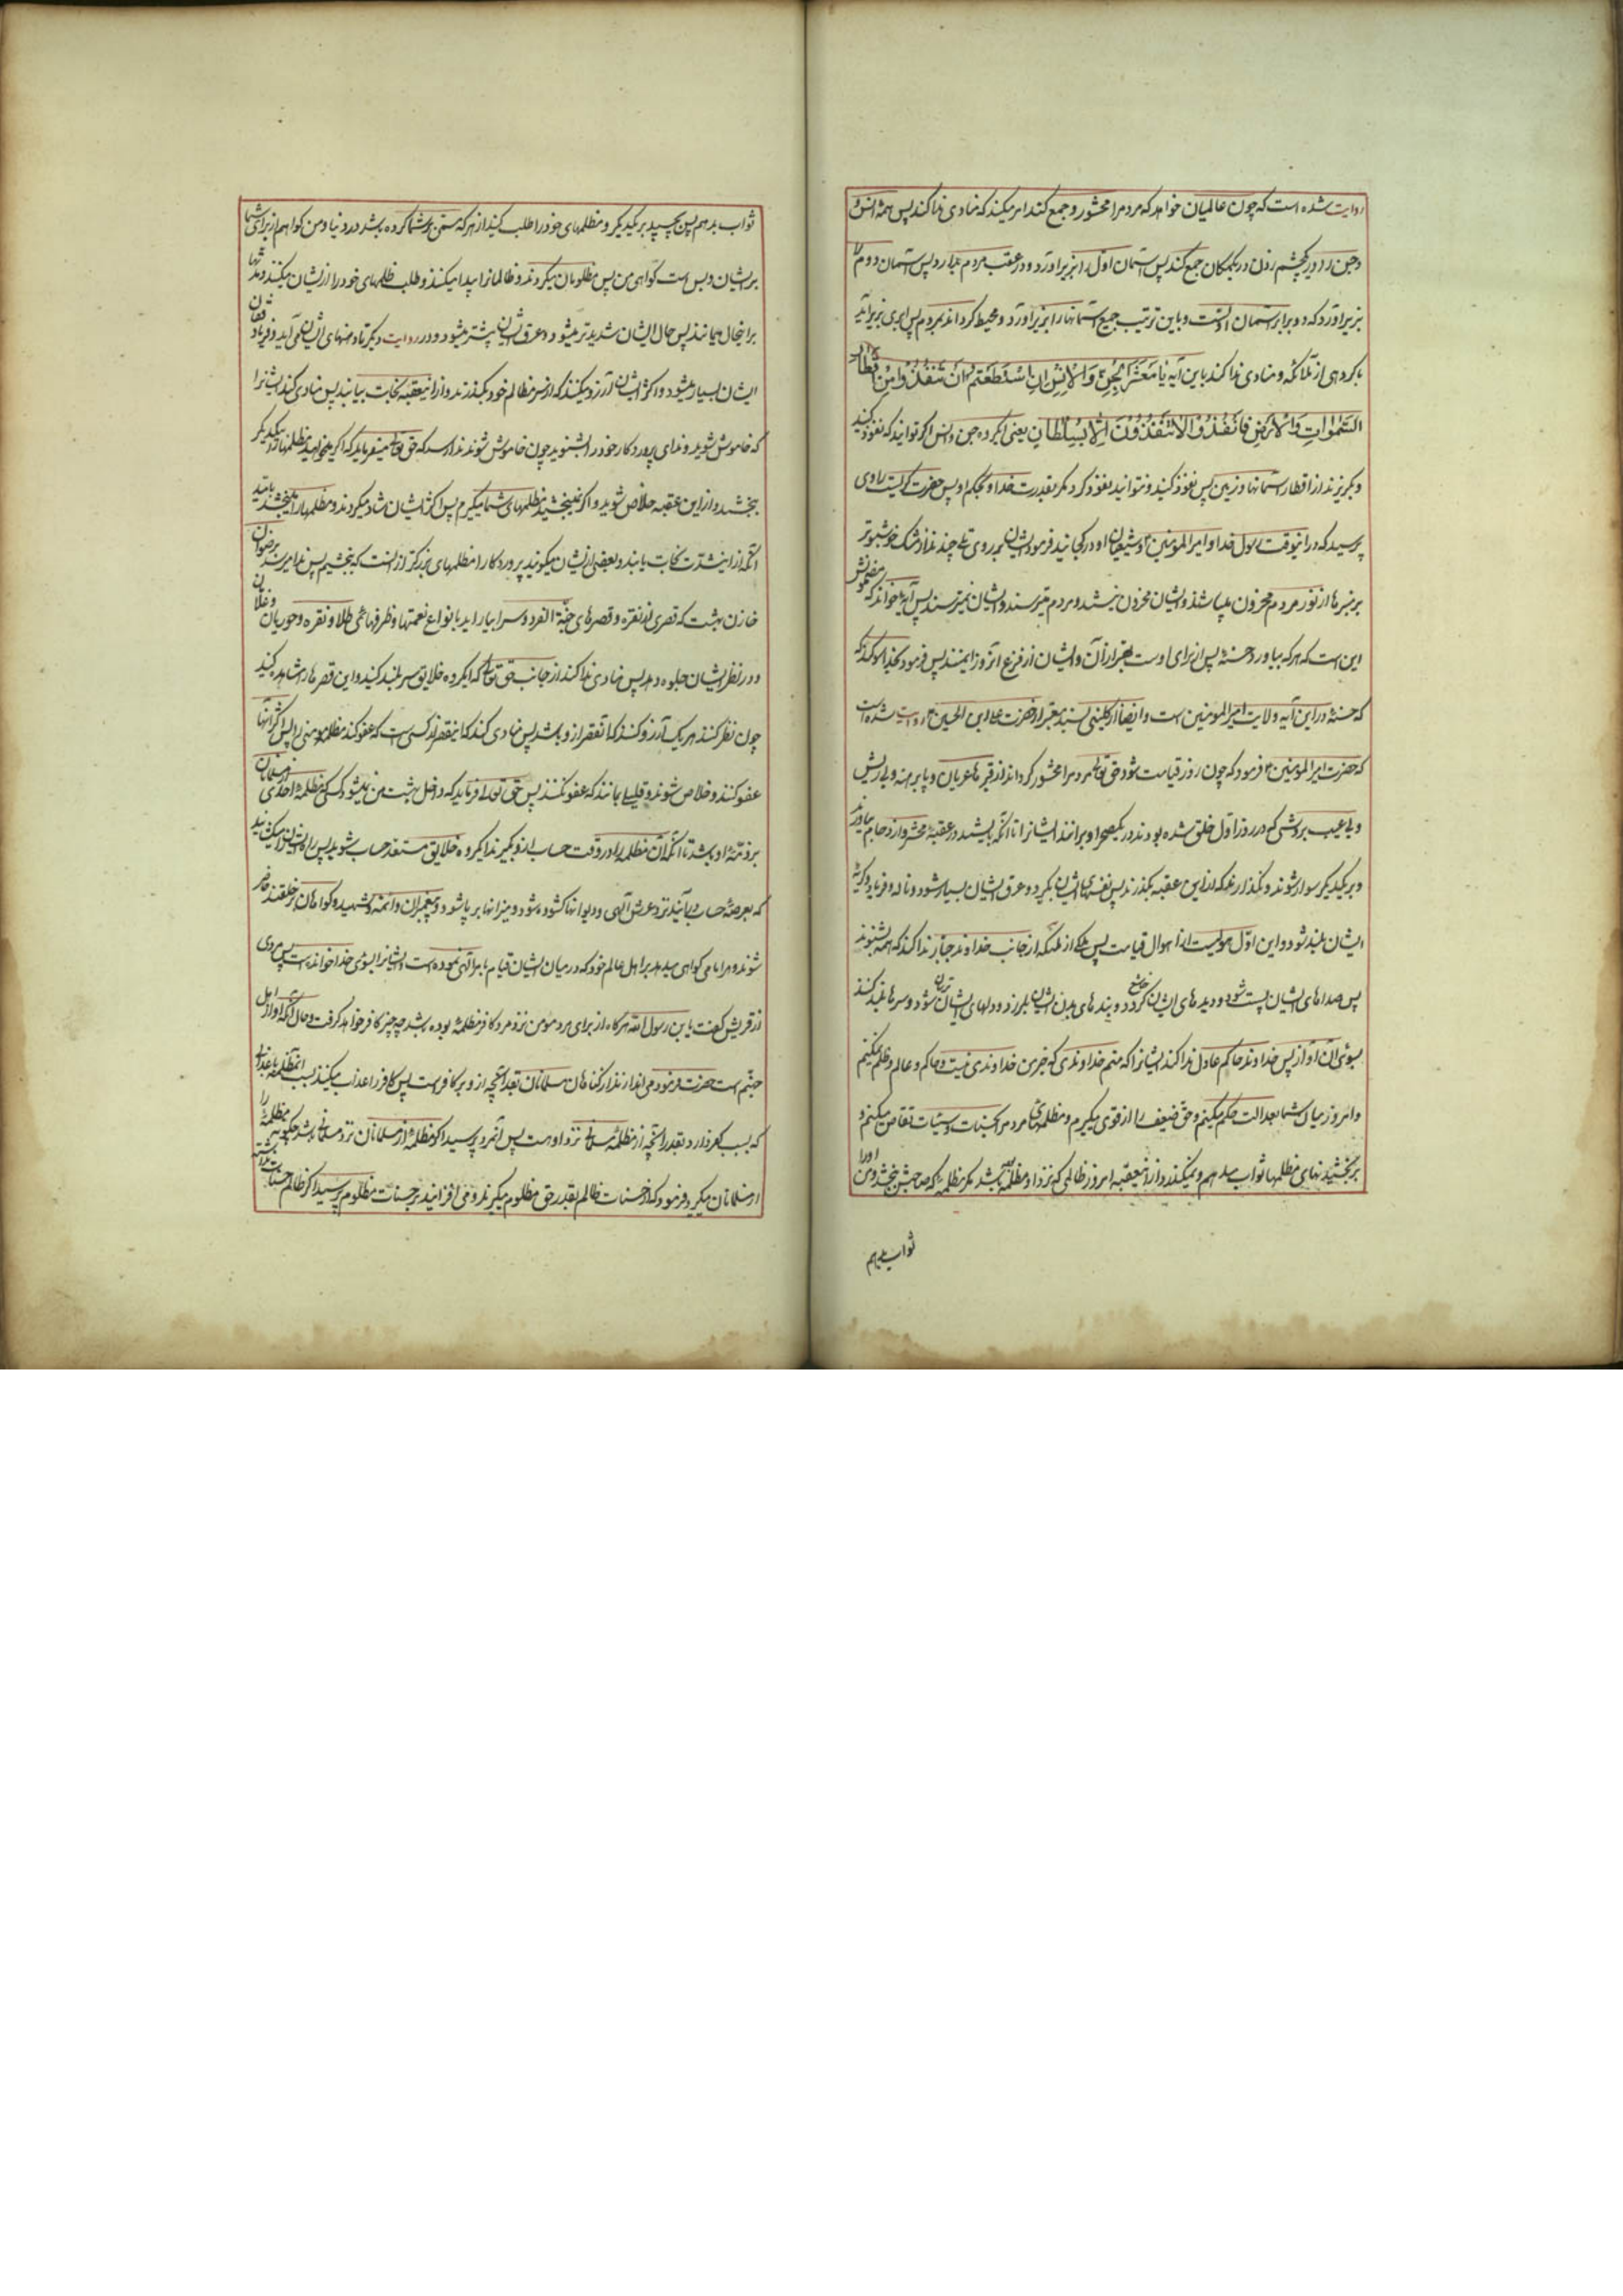 روایت شده است که چون عالمیان خواهد که مردم را محشور و جمع کند امر میکند که منادی ندا کند پس همه انس
و جن را در یکچشم زدن در یکمکان جمع کند پس آسمان اول را بزیر آورد و در عقب مردم بدارد پس آسمان دوم را
بزیر آورد که دو برابر آسمان اولست و باین ترتیب جمیع آسمانها را بزیر آورد و محیط گرداند بمردم پس ابری بزیر آید
با گروهی از ملائکه و منادی ندا کند باین آیه یَا مَعْشَرَ الْجِنِّ وَالْاِنْسِ اِنِ اسْتَطَعْتُمْ اَنْ تَنْفُذُوا مِنْ اَقْطَارِ
السَّمٰوَاتِ وَالْاَرْضِ فَانْفُذُوا لَا تَنْفُذُونَ اِلَّا بِسُلْطَانٍ یعنی ای گروه جن و انس اگر توانید که نفوذ کنید
و بگریزید از اقطار آسمانها و زمین پس نفوذ کنید و نتوانید نفوذ کرد مگر بقدرت خدا و بحکم او پس حضرت گریست راوی
پرسید که در انوقت رسول خدا و امیر المومنین و شیعیان او در کجایند فرمود ایشان بر روی تلی چند اند از مشک خوشبوتر
بر منبرها از نور مردم محزون میباشند و ایشان محزون نیستند و مردم میترسند و ایشان نمیترسند پس آیه را خواند که مضمونش
این است که هر که بیاورد حسنه پس از برای اوست بهتر از آن و ایشان از فزع آنروز ایمنند پس فرمود بخدا سوگند که
که حسنه در این آیه ولایت امیر المومنین است و ایضا از کلینی بسند معتبر از حضرت علی ابن الحسین روایت شده است
که حضرت امیر المومنین فرمود که چون روز قیامت شود حق تعالی مردم را محشور گرداند از قبرها عریان و پا برهنه و بی ریش
و بی عیب بروشی که در روز اول خلق شده بودند در یکصحرا و برانند ایشانرا تا آنکه بایستند در عقبه محشر و ازدحام بیاورند
و بر یکدیگر سوار شوند و نگذارند که از این عقبه بگذرند پس نفسهای ایشان بگیرد و عرق ایشان بسیار شود و ناله و فریاد و گریه
ایشان بلند شود و این اول هولیست از اهوال قیامت پس ملکی از ملائکه از جانب خداوند جبار ندا کند که همه بشنوند
پس صداهای ایشان پست شود و دیدهای ایشان خاشع گردد و بندهای بدن ایشان بلرزد و دلهای ایشان ترسان شود و سرها بلند کنند
بسوی آن آواز پس خداوند حاکم عادل ندا کند ایشانرا که منم خداوندی که بجز من خداوندی نیست و حاکم و عالم و ظلم نمیکنم
و امروز میان شما بعدالت حکم میکنم و حق ضعیف را از قوی میگیرم و مظلمهای مردم را بحسنات و سیئات تقاص میکنم و
بر بخشیدنهای مظلمها ثواب میدهم و نمیگذرد از این عقبه امروز ظالمی که نزد او مظلمه باشد مگر مظلمه که صاحبش ببخشد و من او را
ثواب بدهم
ثواب بدهم پس بچسبید بر یکدیگر و مظلمهای خود را طلب کنید از هر که ستمی بر شما کرده باشد در دنیا و من گواهم از برای شما
بر ایشان و بس است گواهی من پس مظلومان میگردند و ظالمانرا پیدا میکنند و طلب ظلمهای خود را از ایشان میکنند و مدتها
براینحال میمانند پس حال ایشان شدیدتر میشود و عرق ایشان بیشتر میشود و در روایت دیگر تا دهنهای ایشان می آید و فریاد و فغان
ایشان بسیار میشود و اکثر ایشان آرزو میکنند که از سر مظالم خود بگذرند و از اینعقبه نجات بیابند پس منادی کند ایشانرا
که خاموش شوید و ندای پروردگار خود را بشنوید چون خاموش شوند ندا رسد که حق تعالی میفرماید که اگر میخواهید مظلمها را بیکدیگر
ببخشید و از این عقبه خلاص شوید و اگر نمیبخشید مظلمهای شما میگیرم پس اکثر ایشان شاد میگردند و مظلمها را میبخشند بامید
آنکه از اینشدت نجات یابند و بعضی از ایشان میگویند پروردگارا مظلمهای بزرگتر از آنست که ببخشیم پس ندا میرسد برضوان
خازن بهشت که قصری از نقره و قصرهای جنة الفردوس را بیاراید با انواع نعمتها و ظرفهای طلا و نقره و حوریان و غلمان
و در نظر ایشان جلوه دهد پس منادی ندا کند از جانب حق تعالی که ای گروه خلایق سر بلند کنید و این قصرها را مشاهده کنید
چون نظر کنند هر یک آرزو کنند که اینقصر از او باشد پس منادی کند که اینقصر از کسی است که عفو کند مظلمه مومنی را پس اکثر آنها
عفو کنند و خلاص شوند و قلیلی بمانند که عفو نکنند پس حق تعالی فرماید که داخل بهشت من نمیشود کسی که مظلمه احدی از مسلمانان
بر ذمه او باشد تا آنکه آن مظلمه را در وقت حساب از او بگیرند ای گروه خلایق مستعد حساب شوید پس راه ایشان را میگشایند
که بعرصه حساب درآیند نزد عرش الهی و دیوانها گشوده شود و میزانها برپا شود و پیغمبران و ائمه و شهیدا و گواهان بر خلقند حاضر
شوند و هر امامی گواهی میدهد بر اهل عالم خود که در میان ایشان قیام بامر الهی نموده است و ایشانرا بسوی خدا خوانده است پس مردی
از قریش گفت یا بن رسول الله هرگاه از برای مرد مومن نزد مرد کافر مظلمه بوده باشد چه چیز از کافر خواهد گرفت و حال آنکه او از اهل
جهنم است حضرت فرمود می اندازند از گناهان مسلمانان بقدر آنچه از او بر کافر است پس کافر را عذاب میکنند بسبب آنمظلمه با عذابی
که بسبب کفر دارد بقدر آنچه از مظلمه مسلمان نزد اوست پس آنمرد پرسید اگر مظلمه از مسلمانان نزد مسلمانی باشد چگونه مظلمه را
از مسلمانان میگیرند فرمود که از حسنات ظالم بقدر حق مظلوم میگیرند و می افزایند بر حسنات مظلوم پرسید اگر ظالم حسنات نداشته باشد